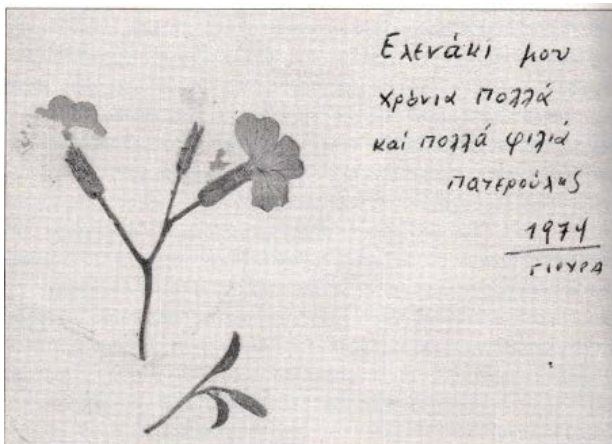 Ελενάκι μου
χρόνια πολλά
καί πολλά φιλιά
πατερούλης
1974
ΓΙΟΥΡΑ